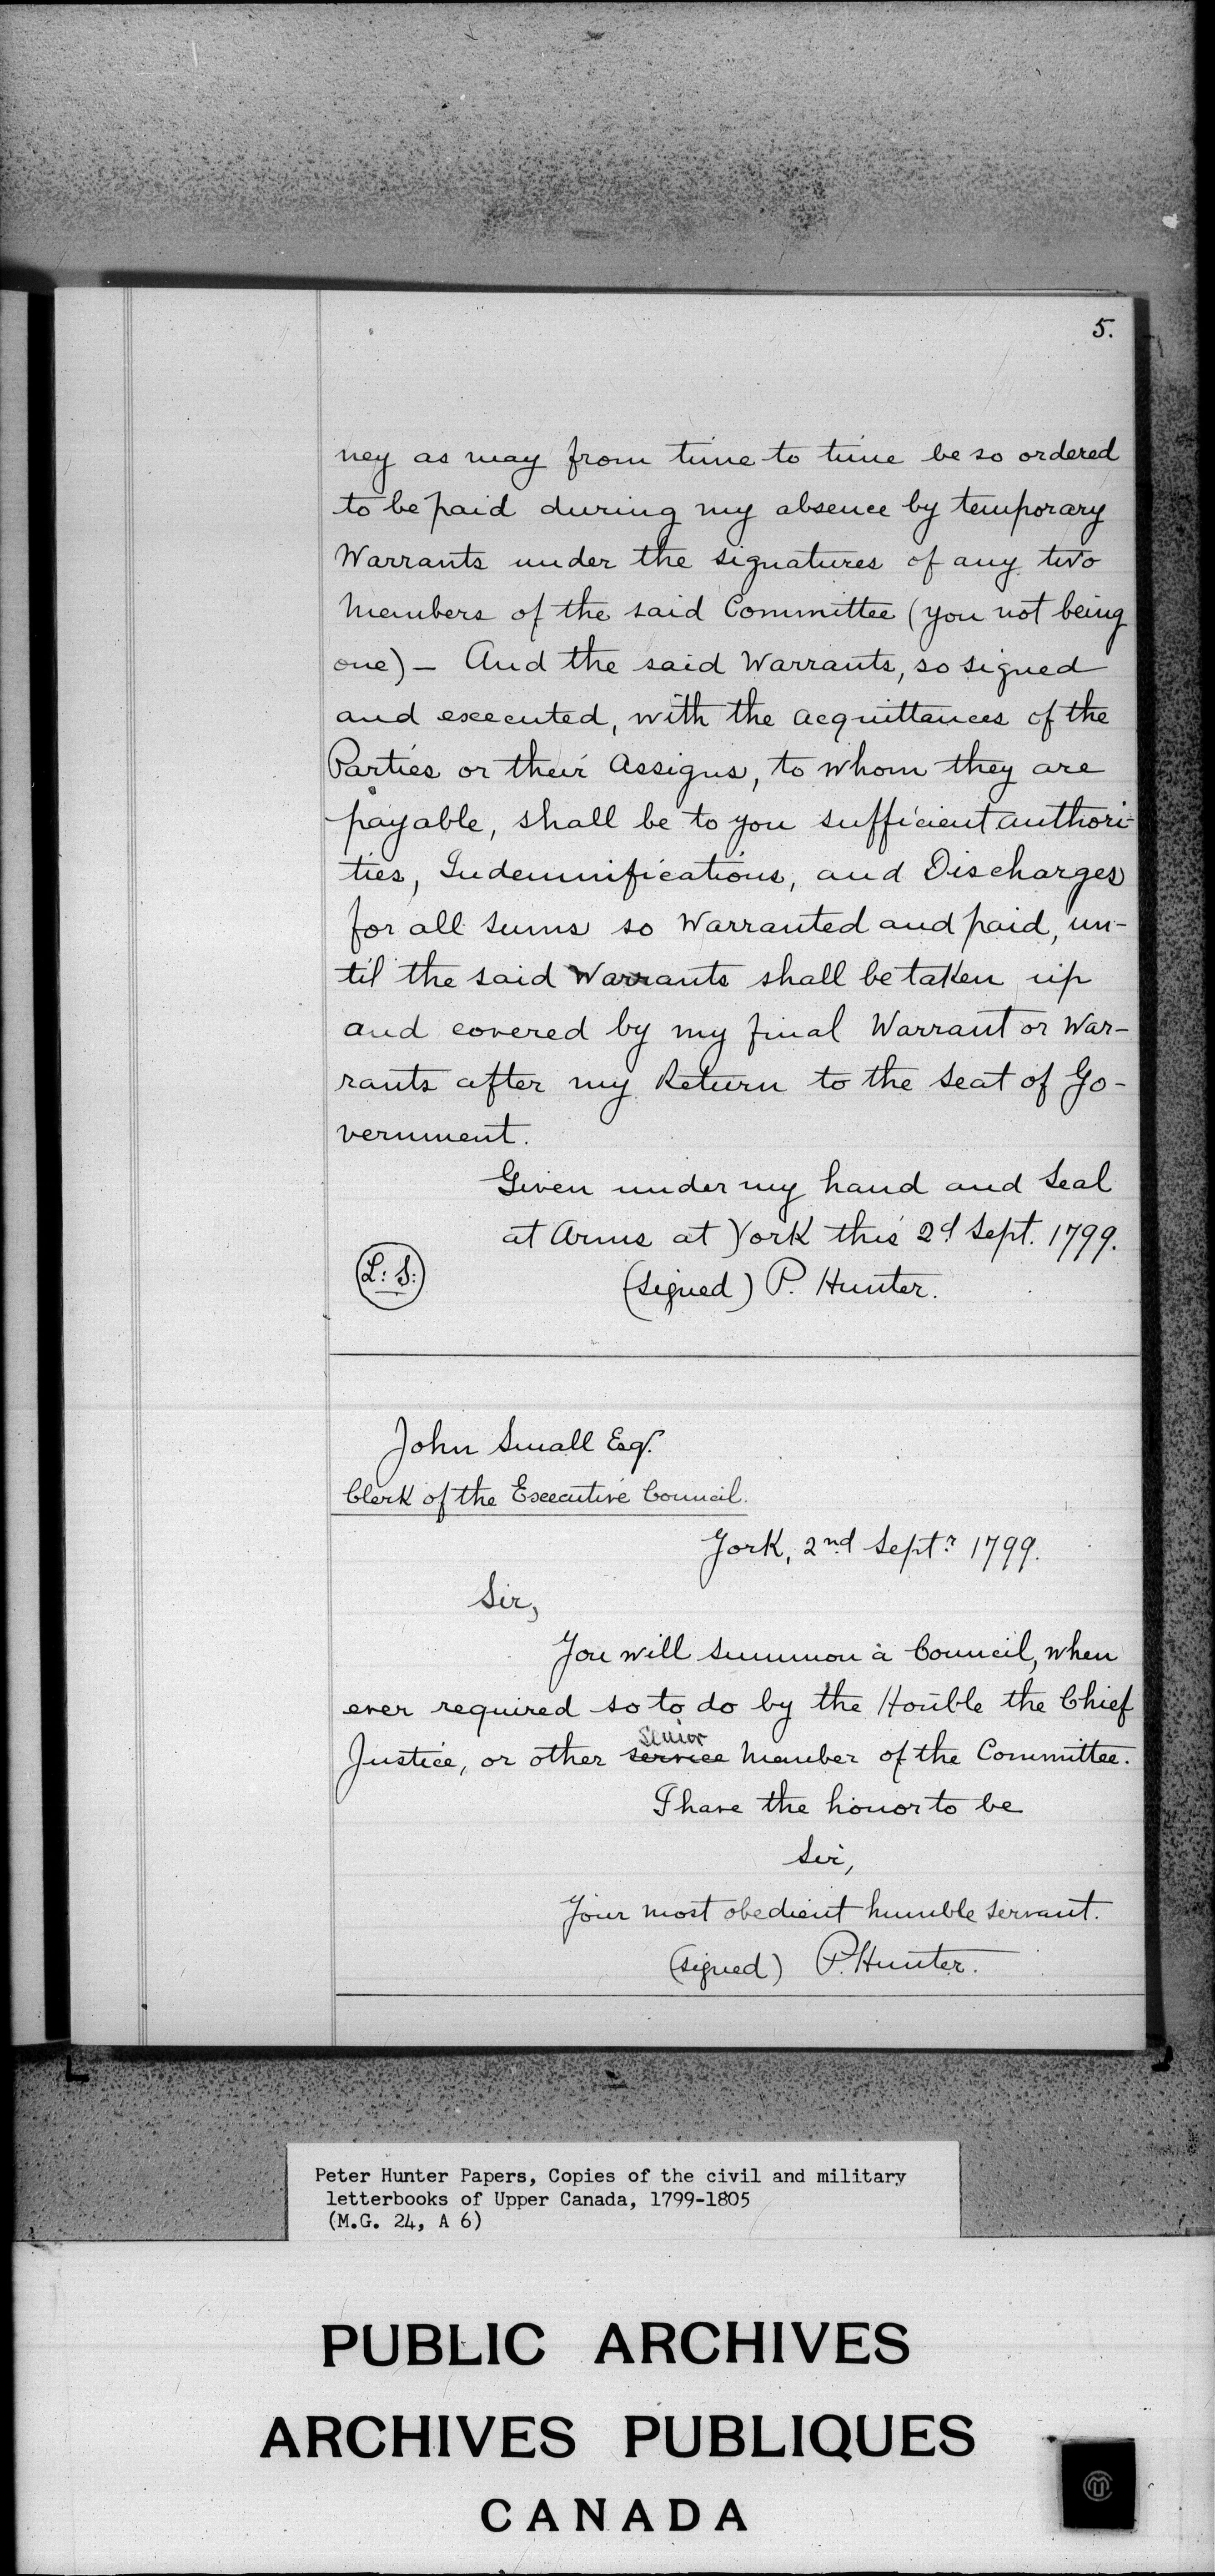 5.
ney as may from time to time be so ordered
to be paid during my absence by temporary
Warrants under the signatures of any two
Members of the said Committee (you not being
one) — And the said Warrants, so signed
and executed, with the acquittances of the
Parties or their Assigns, to whom they are
payable, shall be to you sufficient authori-
ties, Indemnifications, and Discharges
for all sums so Warranted and paid, un-
til the said Warrants shall be taken up
and covered by my final Warrant or War-
rants after my Return to the Seat of Go-
vernment.
Given under my hand and Seal
at Arms at York this 2d Sept. 1799.
(L: S:)
(signed) P. Hunter.
John Small Esqr.
Clerk of the Executive Council.
York, 2nd Septr 1799.
Sir,
You will summon a Council, when
ever required so to do by the Honble the Chief
senior
Justice, or other service Member of the Committee.
I have the honor to be
Sir,
Your most obedient humble servant.
(signed) P. Hunter.
Peter Hunter Papers, Copies of the civil and military
letterbooks of Upper Canada, 1799-1805
(M.G. 24, A 6)
PUBLIC ARCHIVES
ARCHIVES PUBLIQUES
CANADA